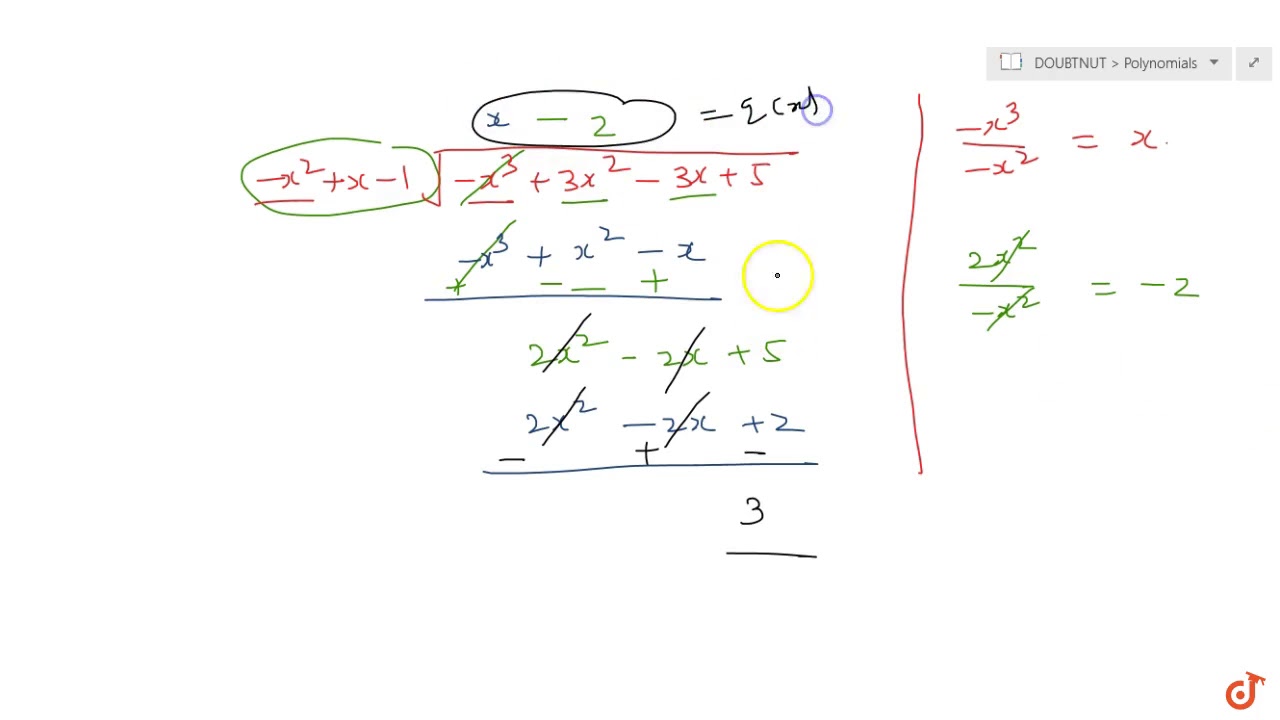 DOUBTNUT > Polynomials
x - 2 = q(x)
-x² + x - 1 -x³ + 3x² - 3x + 5
-x³ + x² - x
+ - +
2x² - 2x + 5
2x² - 2x + 2
- + -
3
-x³
-x² = x.
2x²
-x² = -2